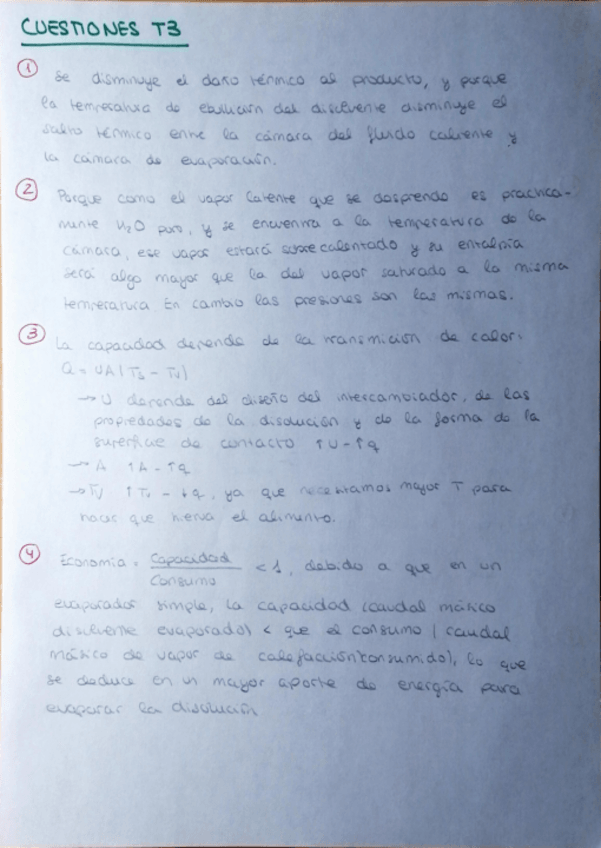 CUESTIONES T3
1 Se disminuye el daño térmico al producto, y porque
la temperatura de ebullición del disolvente disminuye el
salto térmico entre la cámara del fluido caliente y
la cámara de evaporación.
2 Porque como el vapor latente que se desprende es practica-
mente H2O puro, y se encuentra a la temperatura de la
cámara, ese vapor estará sobrecalentado y su entalpía
será algo mayor que la del vapor saturado a la misma
temperatura. En cambio las presiones son las mismas.
3 La capacidad depende de la transmición de calor:
Q = UA(Ts - T1)
→ U depende del diseño del intercambiador, de las
propiedades de la disolución y de la forma de la
superficie de contacto ↑U-↑q
→ A ↑A-↑q
→ T1 ↑T1 - ↓q, ya que necesitamos mayor T para
hacer que hierva el alimento.
4 Economía = Capacidad / Consumo < 1, debido a que en un
evaporador simple, la capacidad (caudal másico
disolvente evaporado) < que el consumo (caudal
másico de vapor de calefacción consumido), lo que
se deduce en un mayor aporte de energía para
evaporar la disolución